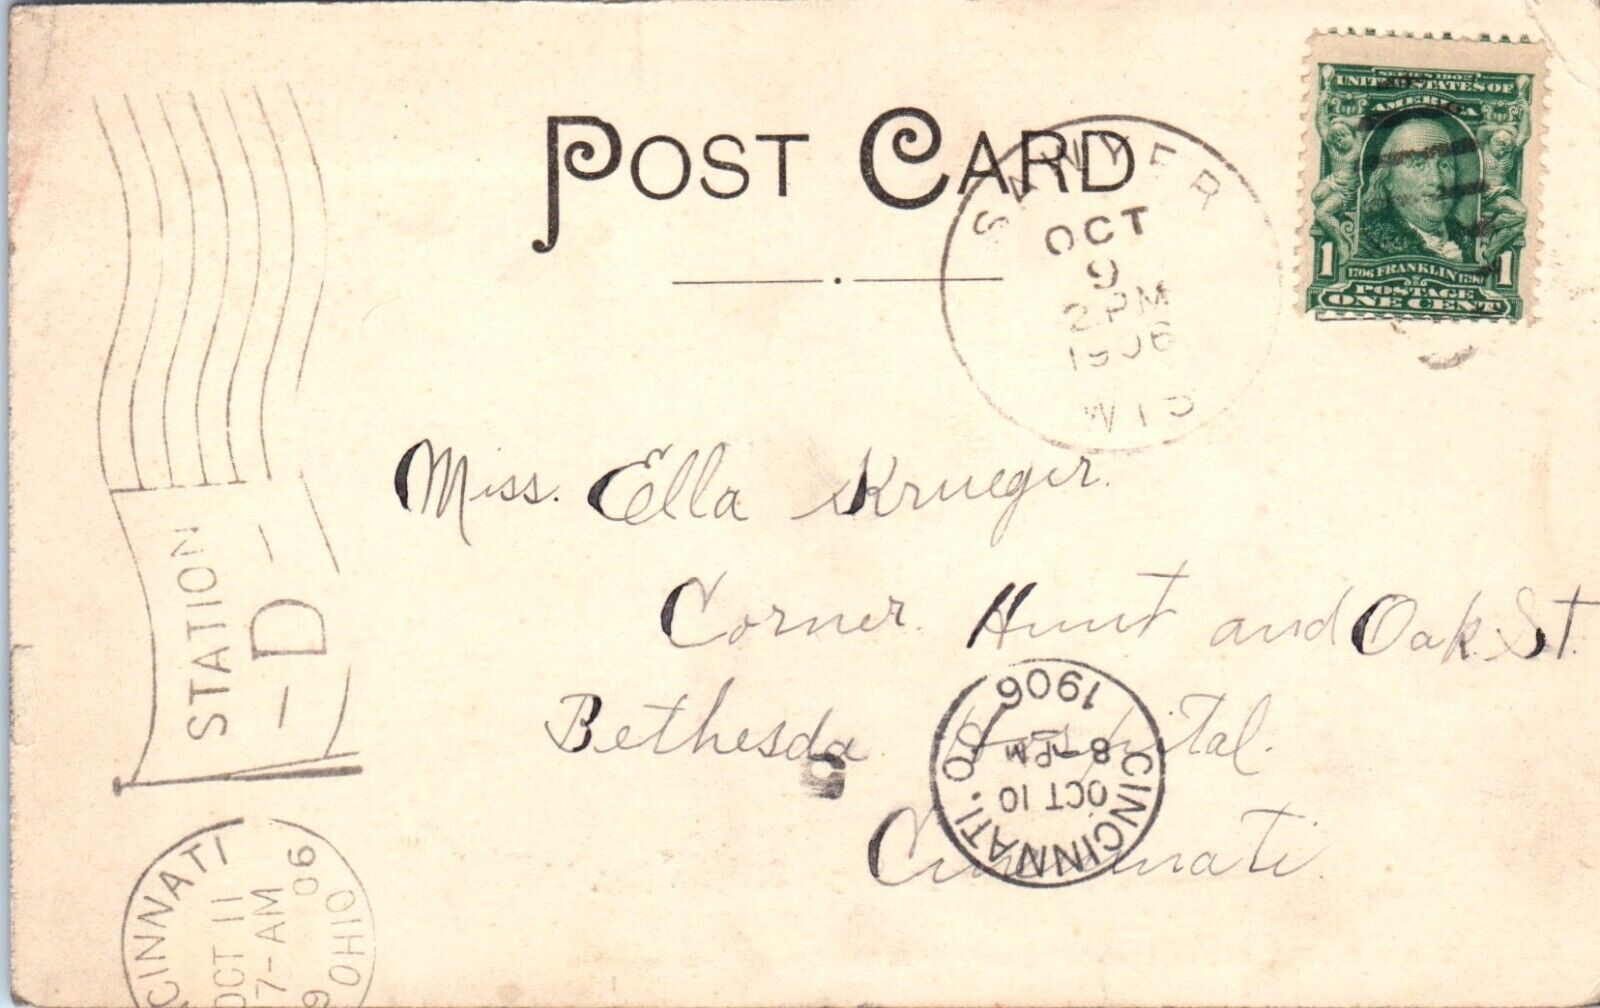 POST CARD
SERIES 1902
UNITED STATES OF
AMERICA
1 1
1706 FRANKLIN 1790
POSTAGE
ONE CENT
SAWYER
OCT
9
2 PM
1906
WIS
Miss. Ella Krueger.
Corner. Hunt and Oak St.
Bethesda Hospital.
Cincinnati.
CINCINNATI. O.
OCT 10
8-PM
1906
STATION
-D-
CINCINNATI
OCT 11
7-AM
06
OHIO
9